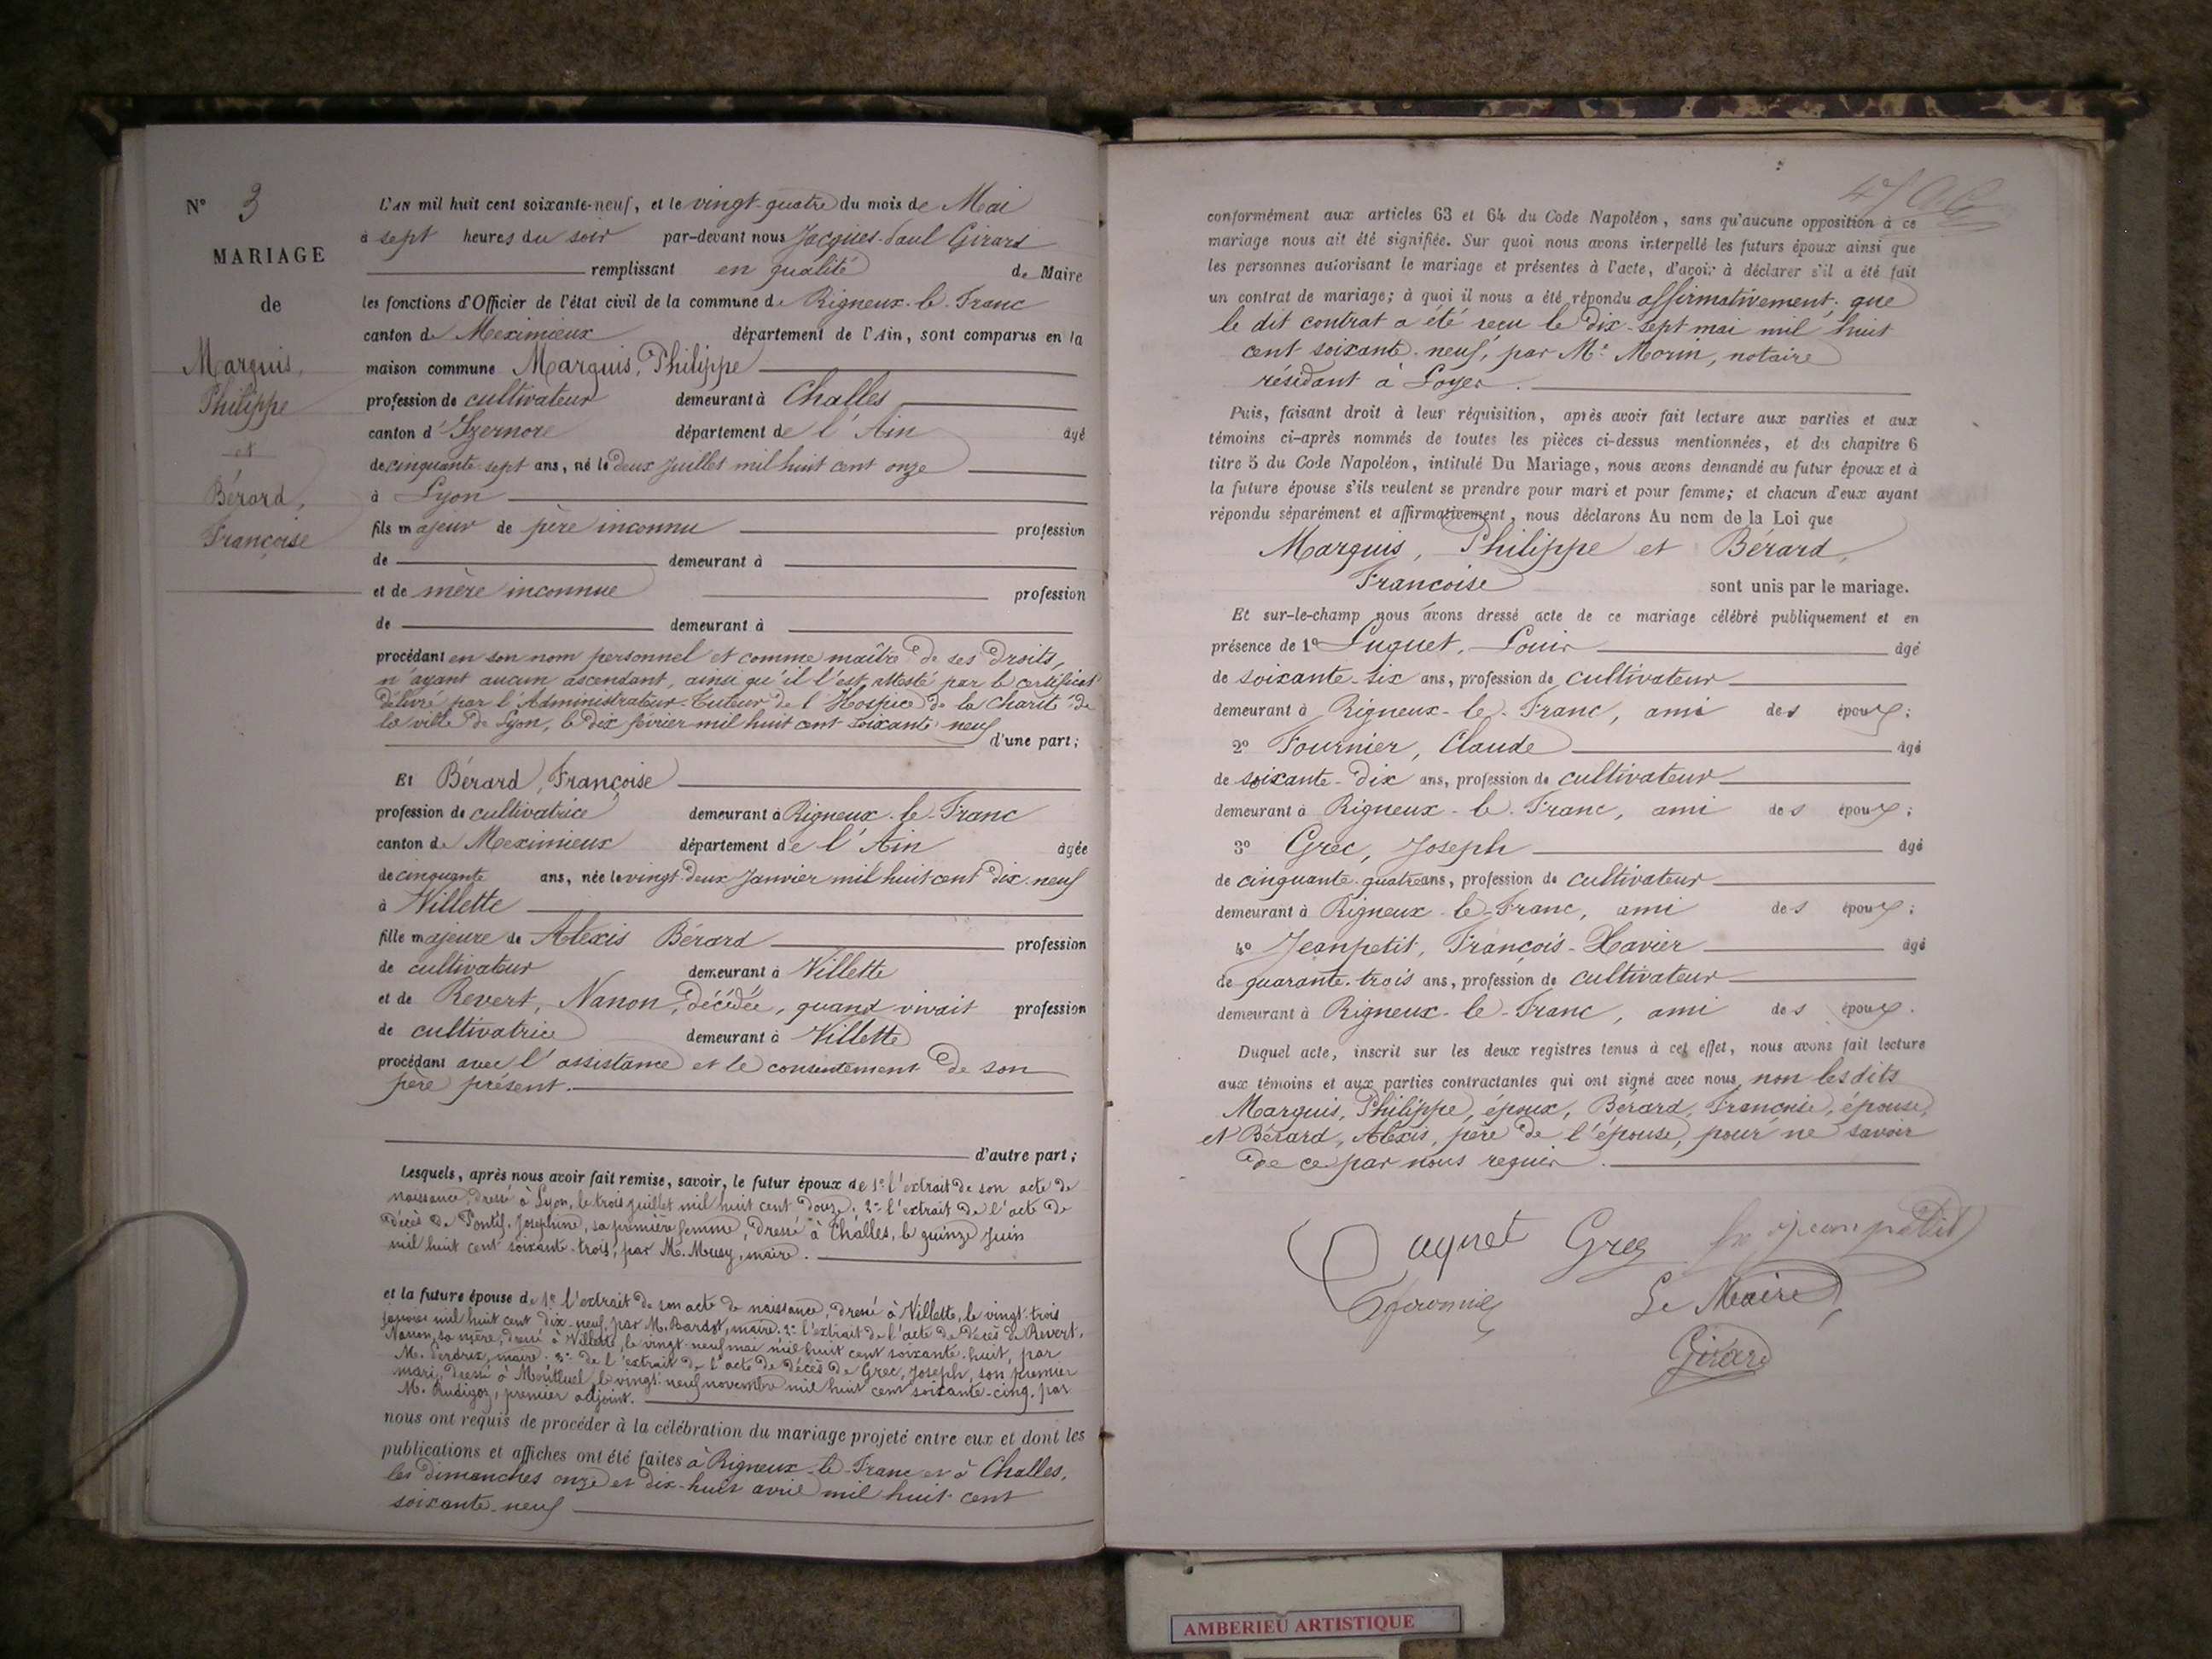 N° 3
MARIAGE
de
Marquis,
Philippe
et
Bérard,
Françoise
L'AN mil huit cent soixante-neuf, et le vingt-quatre du mois de Mai
à sept heures du soir par-devant nous Jacques-Paul Girard
remplissant en qualité de Maire
les fonctions d'Officier de l'état civil de la commune de Rigneux-le-Franc
canton de Meximieux département de l'Ain, sont comparus en la
maison commune Marquis, Philippe
profession de cultivateur demeurant à Challes
canton d'Izernore département de l'Ain âgé
de cinquante-sept ans, né le deux Juillet mil huit cent onze
à Lyon
fils majeur de père inconnu profession
de demeurant à
et de mère inconnue profession
de demeurant à
procédant en son nom personnel et comme maître de ses droits,
n'ayant aucun ascendant, ainsi qu'il l'est attesté par le certificat
délivré par l'Administrateur-Tuteur de l'Hospice de la Charité de
la ville de Lyon, le dix février mil huit cent soixante-neuf
d'une part;
Et Bérard, Françoise
profession de cultivatrice demeurant à Rigneux-le-Franc
canton de Meximieux département de l'Ain âgée
de cinquante ans, née le vingt-deux Janvier mil huit cent dix-neuf
à Villette
fille majeure de Alexis Bérard profession
de cultivateur demeurant à Villette
et de Revert, Nanon, décédée, quand vivait profession
de cultivatrice demeurant à Villette
procédant avec l'assistance et le consentement de son
père présent.
d'autre part;
Lesquels, après nous avoir fait remise, savoir, le futur époux de 1° l'extrait de son acte de
naissance, dressé à Lyon, le trois juillet mil huit cent douze; 2° l'extrait de l'acte de
décès de Pontif, Josephine, sa première femme, dressé à Challes, le quinze juin
mil huit cent soixante-trois, par M. Musy, maire.
et la future épouse de 1° l'extrait de son acte de naissance, dressé à Villette, le vingt-trois
janvier mil huit cent dix-neuf, par M. Bardot, maire. 2° l'extrait de l'acte de décès de Revert,
Nanon, sa mère, dressé à Villette, le vingt-neuf mai mil huit cent soixante-huit, par
M. Perdrix, maire. 3° de l'extrait de l'acte de décès de Grec, Joseph, son premier
mari, dressé à Montluel, le vingt-neuf novembre mil huit cent soixante-cinq, par
M. Rudigoz, premier adjoint.
nous ont requis de procéder à la célébration du mariage projeté entre eux et dont les
publications et affiches ont été faites à Rigneux-le-Franc et à Challes,
les dimanches onze et dix-huit avril mil huit cent
soixante-neuf
conformément aux articles 63 et 64 du Code Napoléon, sans qu'aucune opposition à ce
mariage nous ait été signifiée. Sur quoi nous avons interpellé les futurs époux ainsi que
les personnes autorisant le mariage et présentes à l'acte, d'avoir à déclarer s'il a été fait
un contrat de mariage; à quoi il nous a été répondu affirmativement; que
le dit contrat a été reçu le dix-sept mai mil huit
cent soixante-neuf, par Me Morin, notaire
résidant à Loyes.
Puis, faisant droit à leur réquisition, après avoir fait lecture aux parties et aux
témoins ci-après nommés de toutes les pièces ci-dessus mentionnées, et du chapitre 6
titre 5 du Code Napoléon, intitulé Du Mariage, nous avons demandé au futur époux et à
la future épouse s'ils veulent se prendre pour mari et pour femme; et chacun d'eux ayant
répondu séparément et affirmativement, nous déclarons Au nom de la Loi que
Marquis, Philippe et Bérard,
Francoise sont unis par le mariage.
Et sur-le-champ nous avons dressé acte de ce mariage célébré publiquement et en
présence de 1° Luquet, Louis âgé
de soixante-six ans, profession de cultivateur
demeurant à Rigneux-le-Franc, ami des époux;
2° Fournier, Claude âgé
de soixante-dix ans, profession de cultivateur
demeurant à Rigneux-le-Franc, ami des époux;
3° Grec, Joseph âgé
de cinquante-quatre ans, profession de cultivateur
demeurant à Rigneux-le-Franc, ami des époux;
4° Jeanpetit, François-Xavier âgé
de quarante-trois ans, profession de cultivateur
demeurant à Rigneux-le-Franc, ami des époux.
Duquel acte, inscrit sur les deux registres tenus à cet effet, nous avons fait lecture
aux témoins et aux parties contractantes qui ont signé avec nous, non les dits
Marquis, Philippe, époux, Bérard, Françoise, épouse,
et Bérard, Alexis, père de l'épouse, pour ne savoir
de ce par nous requis.
Luquet Grec fx jeanpetit
Le Maire,
Girard
AMBERIEU ARTISTIQUE